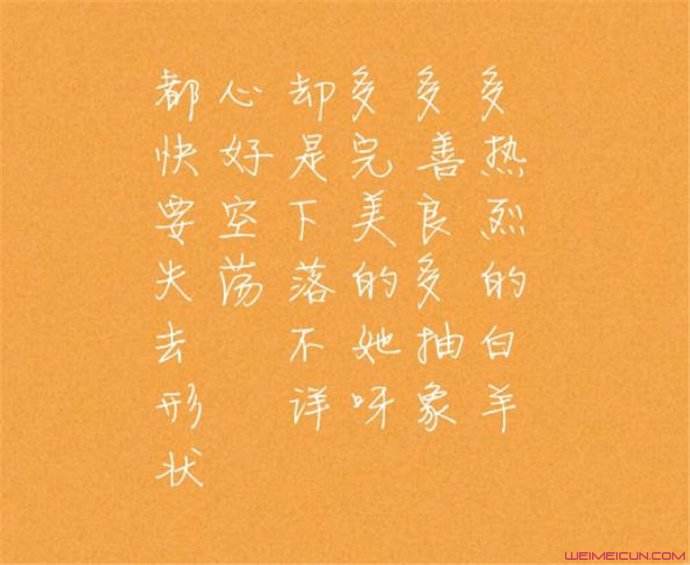 多热烈的白羊
多善良多抽象
多完美的她呀
却是下落不详
心好空荡
都快要失去形状
WEIMEICUN.COM